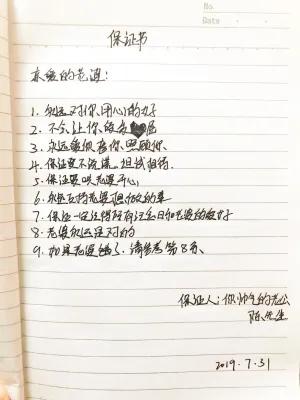 No.
Date
保证书
亲爱的老婆:
1. 永远对你用心的好
2. 不会让你受委屈
3. 永远爱你疼你照顾你
4. 保证要不说谎. 坦诚相待.
5. 保证要哄老婆开心
6. 永远支持老婆想做的事
7. 保证一定记得所有纪念日和老婆的爱好
8. 老婆永远是对的
9. 如果老婆错了. 请参考第8条
保证人: 你帅气的老公
陈先生
2019.7.31